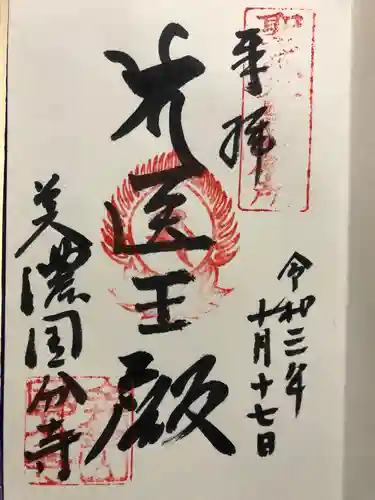 奉拝
令和三年
十月十七日
医王殿
美濃国分寺